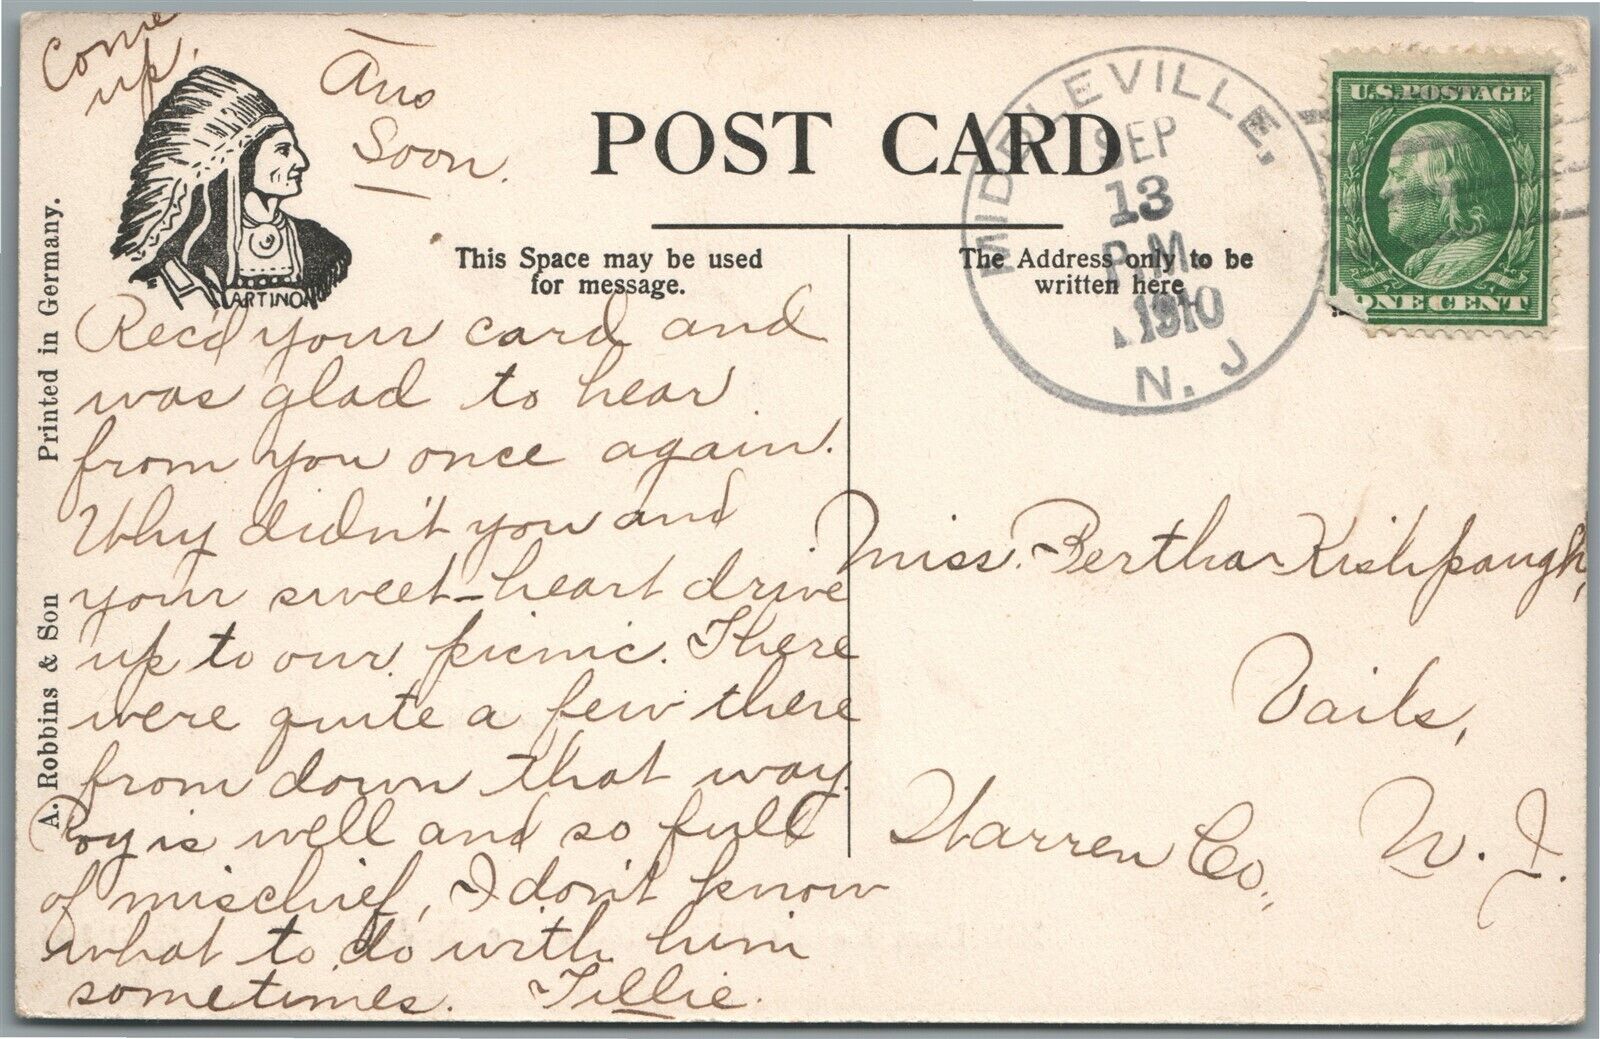 Come
up.
Ans
Soon.
POST CARD
MIDDLEVILLE,
SEP
13
P.M.
1910
N. J
U.S. POSTAGE
ONE CENT
This Space may be used
for message.
The Address only to be
written here
ARTINO
Printed in Germany.
A. Robbins & Son
Rec'd your card and
was glad to hear
from you once again.
Why didn't you and
your sweet-heart drive
up to our picnic. There
were quite a few there
from down that way.
Roy is well and so full
of mischief, I don't know
what to do with him
sometimes. Tillie.
Miss. Bertha Kishpaugh,
Vails,
Warren Co., N. J.